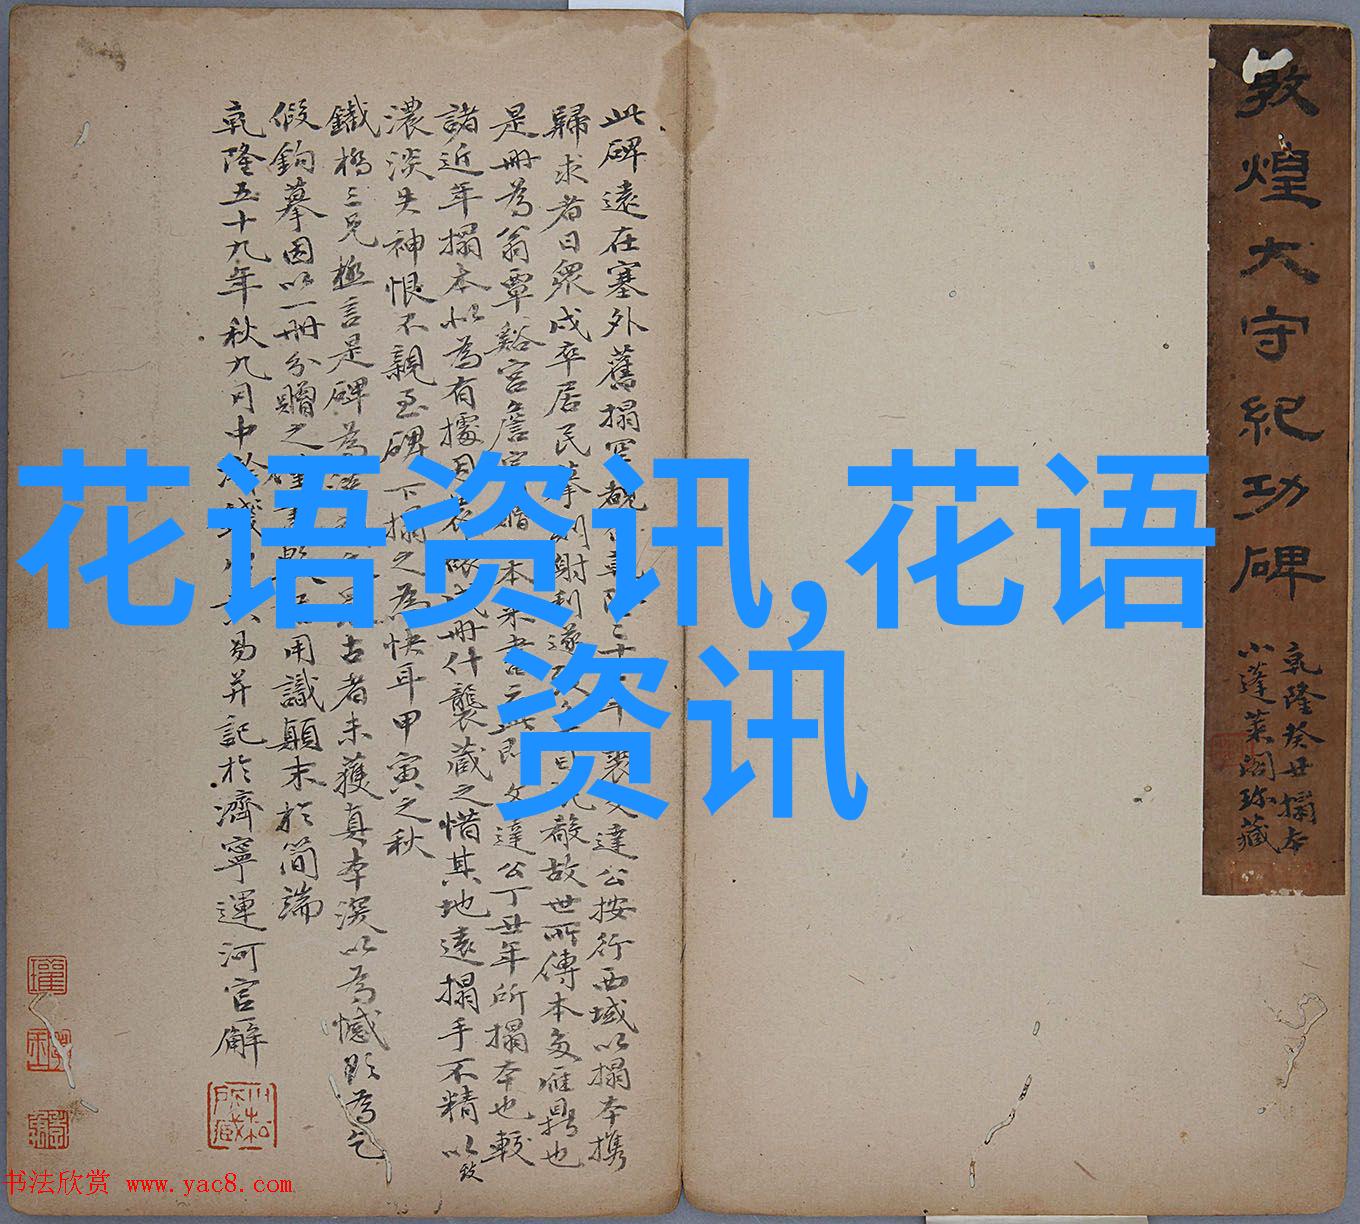 敦煌大守紀功碑
乾隆癸丑搨本
小蓬萊閣珍藏
此碑遠在塞外舊搨罕文達公按行西域以搨本攜
歸求者日衆戍卒居民摹刻射利遂故世所傳本多雁鼎也
是册為翁覃谿宮詹本文達公丁丑年所搨本也較
諸近年搨本以為有據因成册什襲藏之惜其地遠搨手不精以致
濃淡失神恨不親至碑下搨之為快耳甲寅之秋
鐵橋三兄極言是碑為古者未獲真本深以為憾為乞
假鉤摹因以一册分贈之用識顛末於简端
乾隆五十九年秋九月中易并記於濟寧運河官廨
花语资讯,花语
资讯
书法欣赏 www.yac8.com